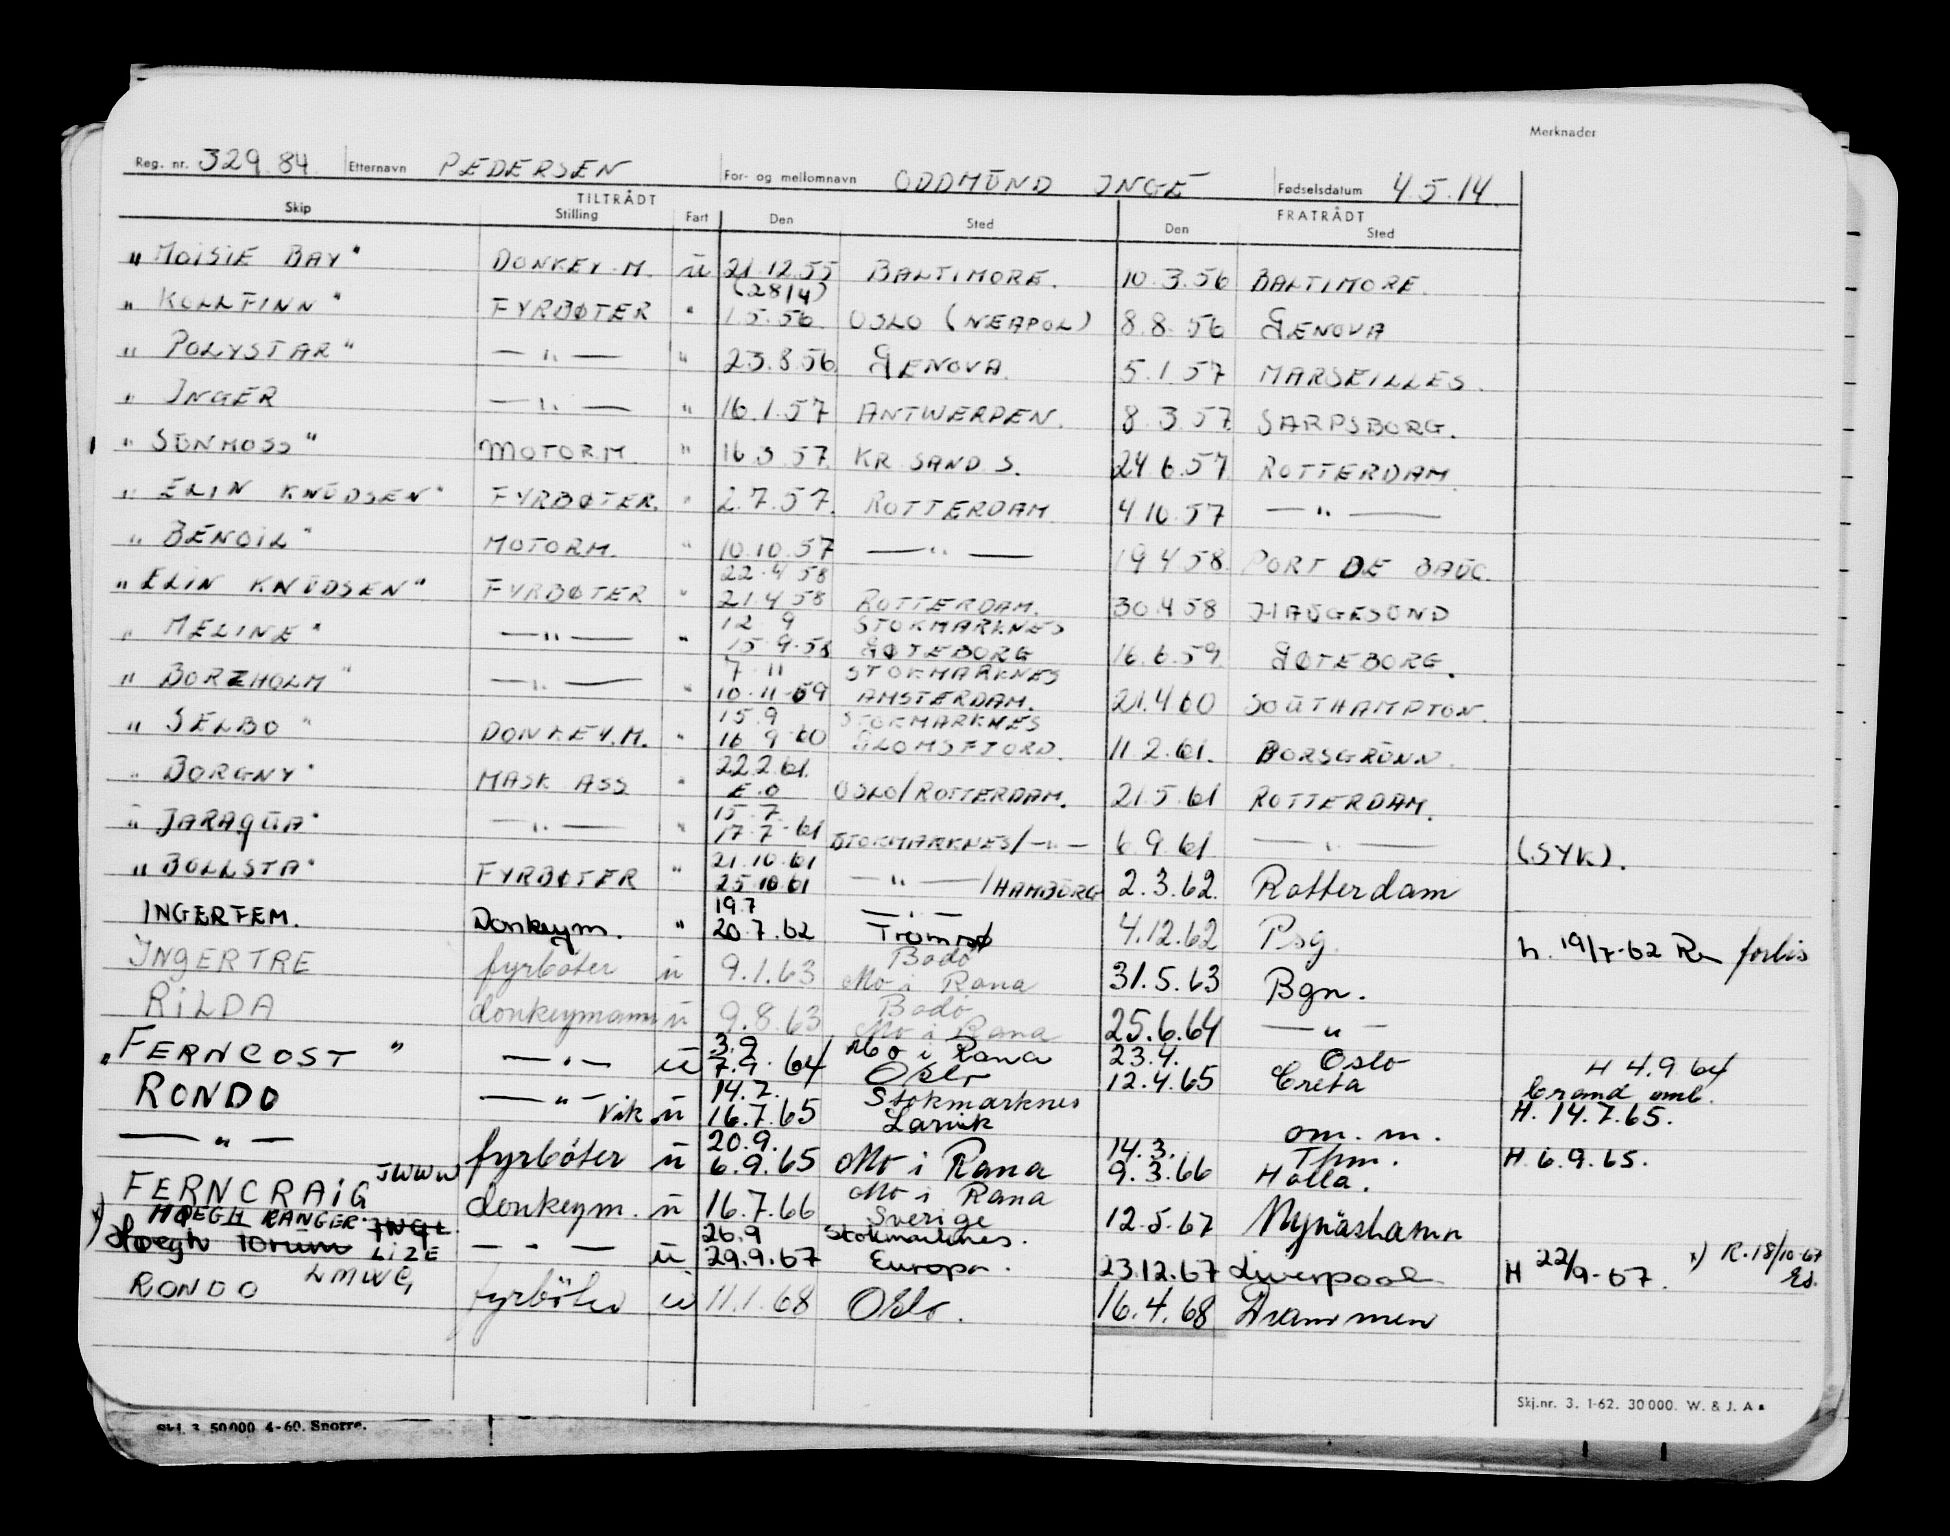 Merknader
Reg. nr. 329.84 Etternavn PEDERSEN For- og mellomnavn ODDMŪND INGE Fødselsdatum 4.5.14.
TILTRÅDT FRATRÅDT
Skip Stilling Fart Den Sted Den Sted
"MOISIE BAY" DONKEY.M. ū 21.12.55 BALTIMORE. 10.3.56 BALTIMORE.
(28/4)
"KOLLFINN" FYRBØTER " 1.5.56. OSLO (NEAPOL) 8.8.56 GENOVA
"POLYSTAR" — " — " 23.8.56 GENOVA. 5.1.57 MARSEILLES.
" INGER — " — " 16.1.57 ANTWERPEN. 8.3.57 SARPSBORG.
" SUNMOSS" MOTORM. " 16.3.57. KR SAND S. 24.6.57. ROTTERDAM
" ELIN KNŪDSEN" FYRBØTER. " 2.7.57. ROTTERDAM 4.10.57 — " —
" BENOIL" MOTORM. " 10.10.57 — " — 19.4.58. PORT DE BAŪC.
22.4.58
"ELIN KNŪDSEN" FYRBØTER " 21.4.58 ROTTERDAM. 30.4.58 HAŪGESŪND
12.9 STOKMARKNES
" MELINE" — " — " 15.9.58 GØTEBORG 16.6.59. GØTEBORG.
7.11 STOKMARKNES
" BORZHOLM" — " — " 10.11.59 AMSTERDAM. 21.4.60 SOŪTHAMPTON.
15.9 STOKMARKNES
" SELBO" DONKEY.M. " 16.9.60 GLOMSFJORD. 11.2.61. BORSGRŪNN.
22.2.61.
" BORGNY" MASK ASS " E.O OSLO/ROTTERDAM. 21.5.61 ROTTERDAM.
15.7.
" JARAQŪA" — " — " 17.7.61 STOKMARKNES/—"— 6.9.61 — " — (SYK).
21.10.61
" BOLLSTA" FYRBØTER " 25.10.61 — " —/HAMBŪRG 2.3.62. Rotterdam
19.7 — " —
INGERFEM. Donkeym. " 20.7.62 Tromsø 4.12.62 Psg. h. 19/7-62 forbis
Bodø
INGERTRE fyrbøter ū 9.1.63 Mo i Rana 31.5.63 Bgn.
Bodø
RILDA donkeymann ū 9.8.63 Mo i Rana 25.6.64 — " —
3.9 Mo i Rana 23.4. Oslo H 4.9 64
"FERNCOST" — " — ū 7.9.64 Oslo 12.4.65 Creta
14.7. Stokmarknes
RONDO — " — vik ū 16.7.65 Larvik om. m. H. 14.7.65.
20.9. 14.3. Thm.
— " — fyrbøter ū 6.9.65 Mo i Rana 9.3.66 Halla. H. 6.9.65.
JWWW Mo i Rana
FERNCRAIG donkeym. ū 16.7.66 Sverige 12.5.67 Nynäshamn
HØEGH RANGER 26.9 Stokmarknes.
x) Høegh Torum LIZE — " — ū 29.9.67 Europa. 23.12.67 Liverpool H 22/9-67. x) R.18/10-67
LMWG
RONDO fyrbøter ū 11.1.68 Oslo. 16.4.68 Drammen
Skj.nr. 3. 1-62. 30000. W. & J. A.
Skj. 3 50000 4-60. Snorre.